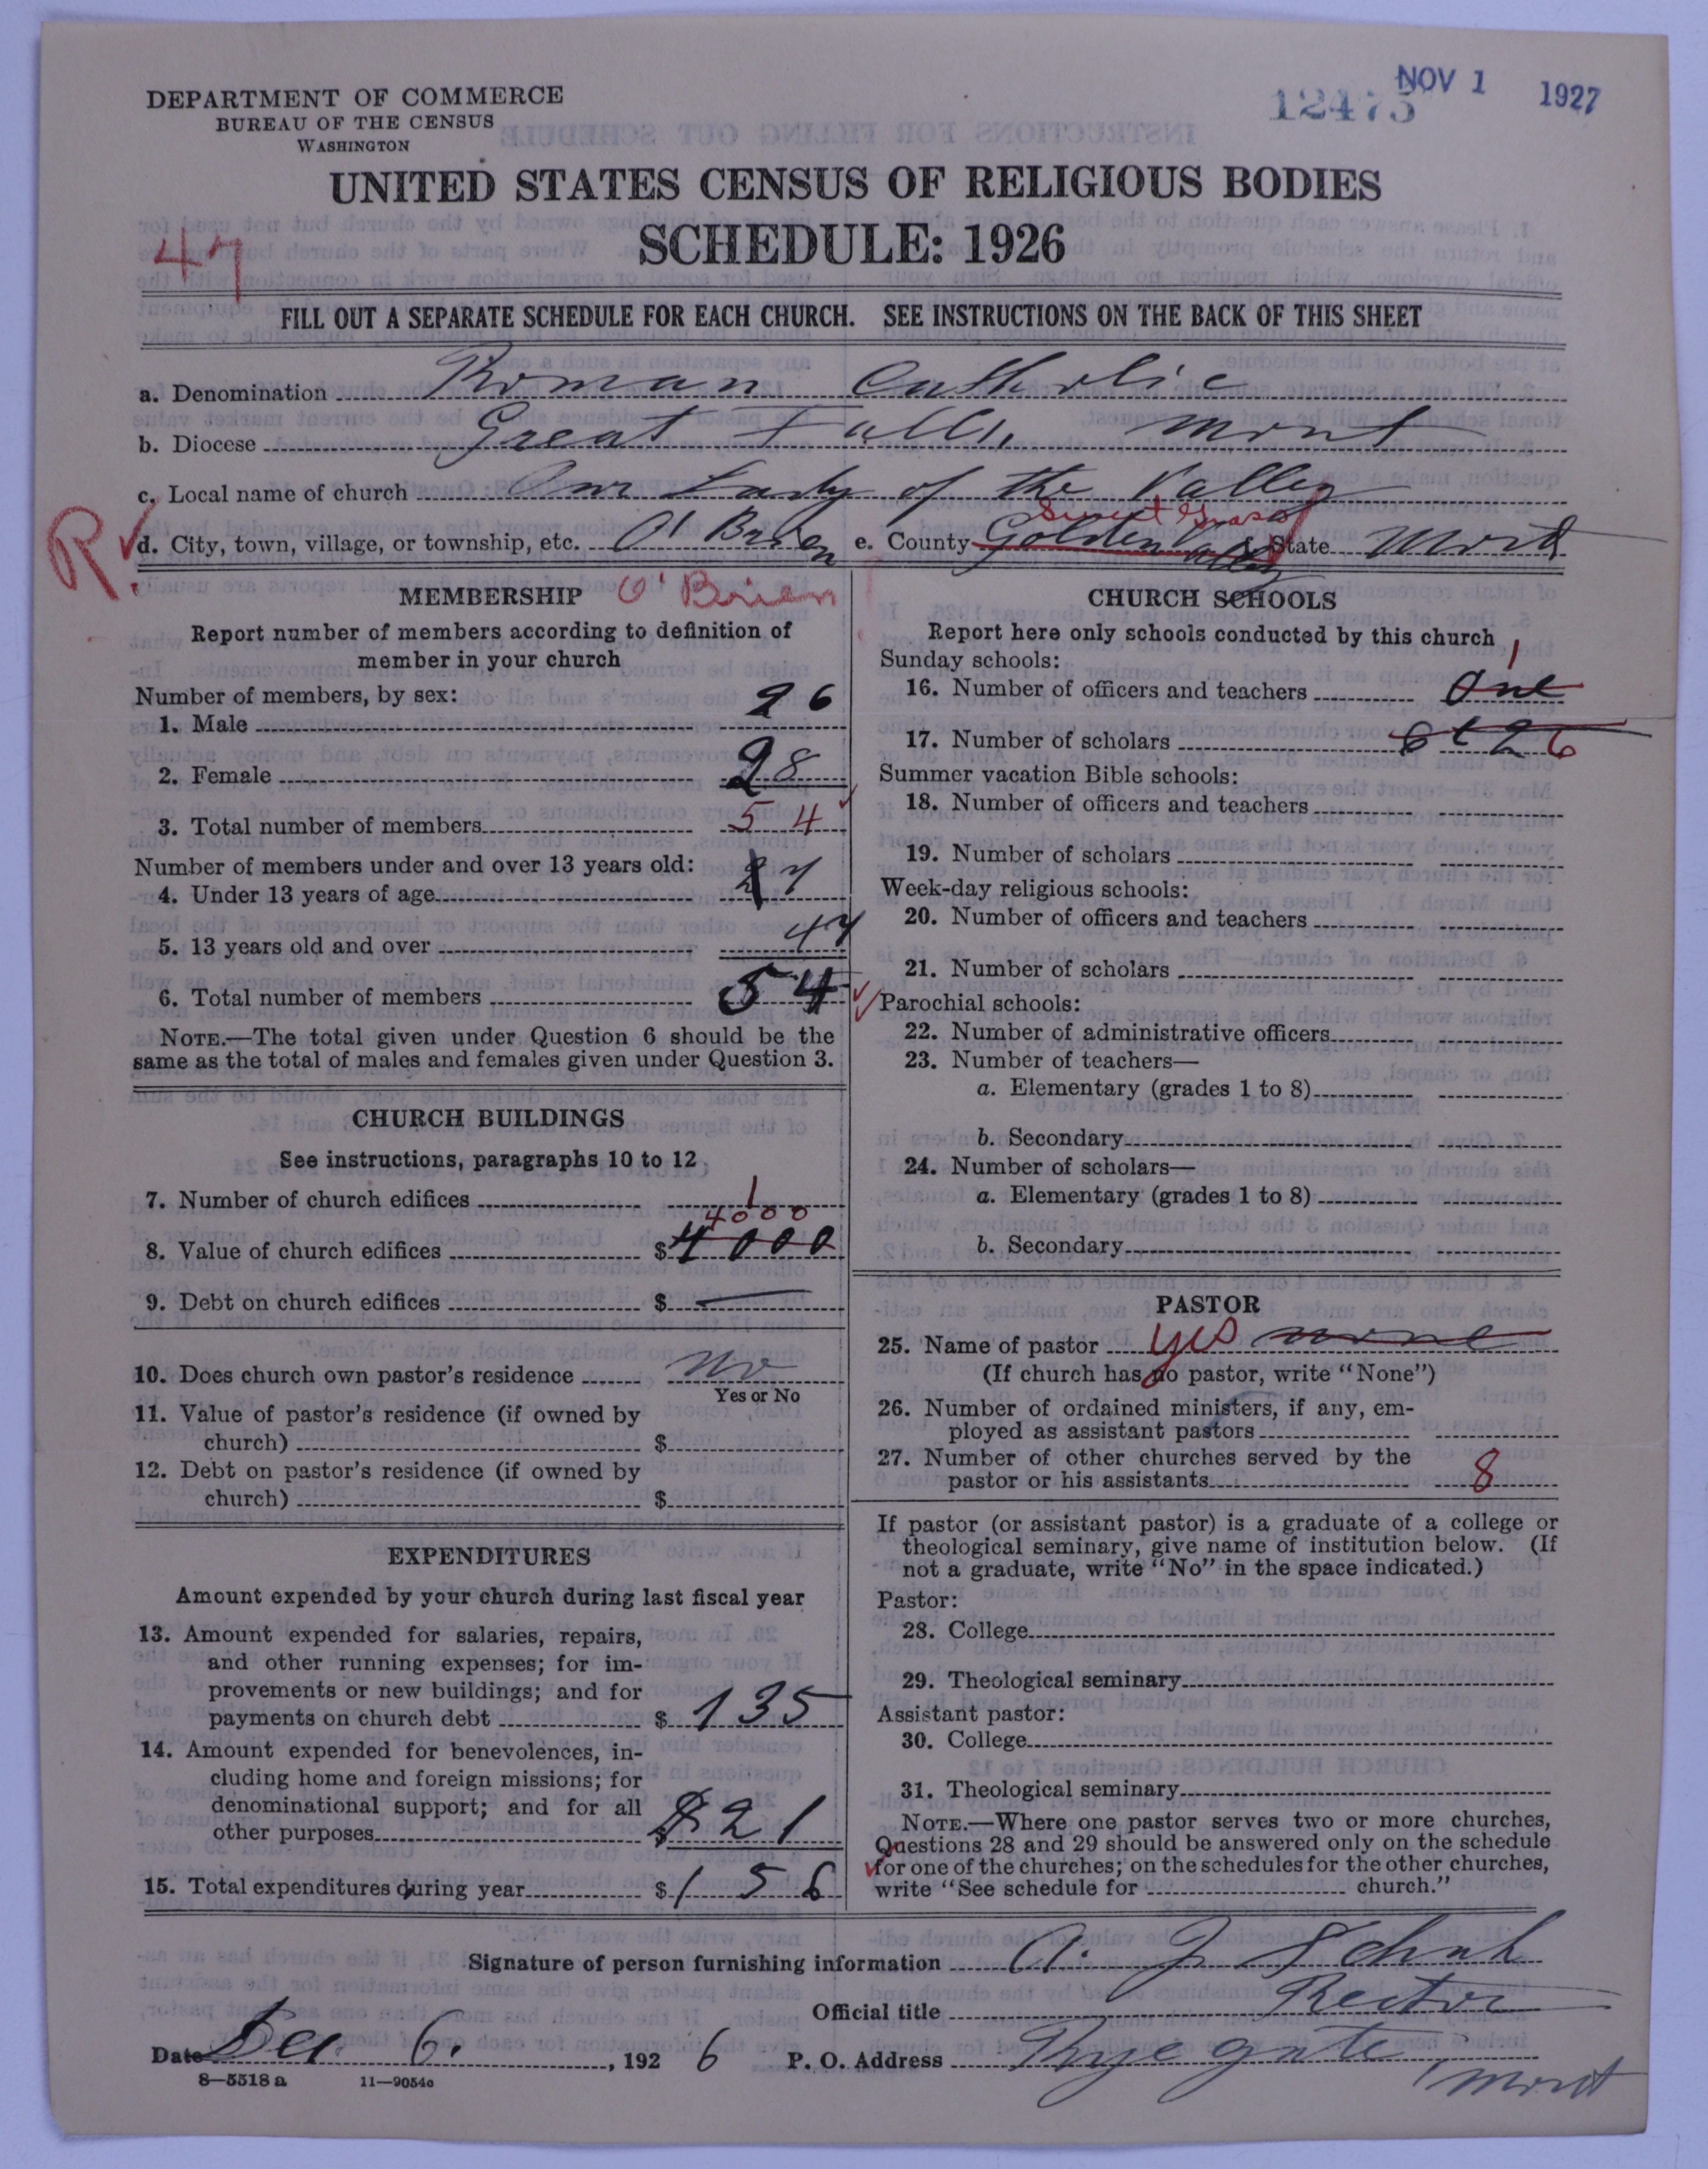 DEPARTMENT OF COMMERCE
BUREAU OF THE CENSUS
WASHINGTON
12473
NOV 1 1927
UNITED STATES CENSUS OF RELIGIOUS BODIES
SCHEDULE: 1926
47
FILL OUT A SEPARATE SCHEDULE FOR EACH CHURCH. SEE INSTRUCTIONS ON THE BACK OF THIS SHEET
a. Denomination Roman Catholic
b. Diocese Great Falls, Mont
c. Local name of church Our Lady of the Valley
R. d. City, town, village, or township, etc. O'Brien e. County Golden Valley Sweet Grass f. State Mont
MEMBERSHIP O'Brien
Report number of members according to definition of
member in your church
Number of members, by sex:
1. Male 26
2. Female 28
3. Total number of members 54
Number of members under and over 13 years old:
4. Under 13 years of age 7
5. 13 years old and over 47
6. Total number of members 54
NOTE.—The total given under Question 6 should be the
same as the total of males and females given under Question 3.
CHURCH BUILDINGS
See instructions, paragraphs 10 to 12
7. Number of church edifices 1
4000
8. Value of church edifices $ 4000
9. Debt on church edifices $ —
10. Does church own pastor's residence No
Yes or No
11. Value of pastor's residence (if owned by
church) $
12. Debt on pastor's residence (if owned by
church) $
EXPENDITURES
Amount expended by your church during last fiscal year
13. Amount expended for salaries, repairs,
and other running expenses; for im-
provements or new buildings; and for
payments on church debt $ 135
14. Amount expended for benevolences, in-
cluding home and foreign missions; for
denominational support; and for all
other purposes $ 21
15. Total expenditures during year $ 156
CHURCH SCHOOLS
Report here only schools conducted by this church
Sunday schools:
1
16. Number of officers and teachers One
17. Number of scholars 6
Summer vacation Bible schools:
18. Number of officers and teachers
19. Number of scholars
Week-day religious schools:
20. Number of officers and teachers
21. Number of scholars
Parochial schools:
22. Number of administrative officers
23. Number of teachers—
a. Elementary (grades 1 to 8)
b. Secondary
24. Number of scholars—
a. Elementary (grades 1 to 8)
b. Secondary
PASTOR
25. Name of pastor yes none
(If church has no pastor, write "None")
26. Number of ordained ministers, if any, em-
ployed as assistant pastors
27. Number of other churches served by the
pastor or his assistants 8
If pastor (or assistant pastor) is a graduate of a college or
theological seminary, give name of institution below. (If
not a graduate, write "No" in the space indicated.)
Pastor:
28. College
29. Theological seminary
Assistant pastor:
30. College
31. Theological seminary
NOTE.—Where one pastor serves two or more churches,
Questions 28 and 29 should be answered only on the schedule
for one of the churches; on the schedules for the other churches,
write "See schedule for church."
Signature of person furnishing information A. J. Schuh
Official title Rector
Date Dec 6. , 1926 P. O. Address Ryegate, Mont
8—5518 a 11—9054a